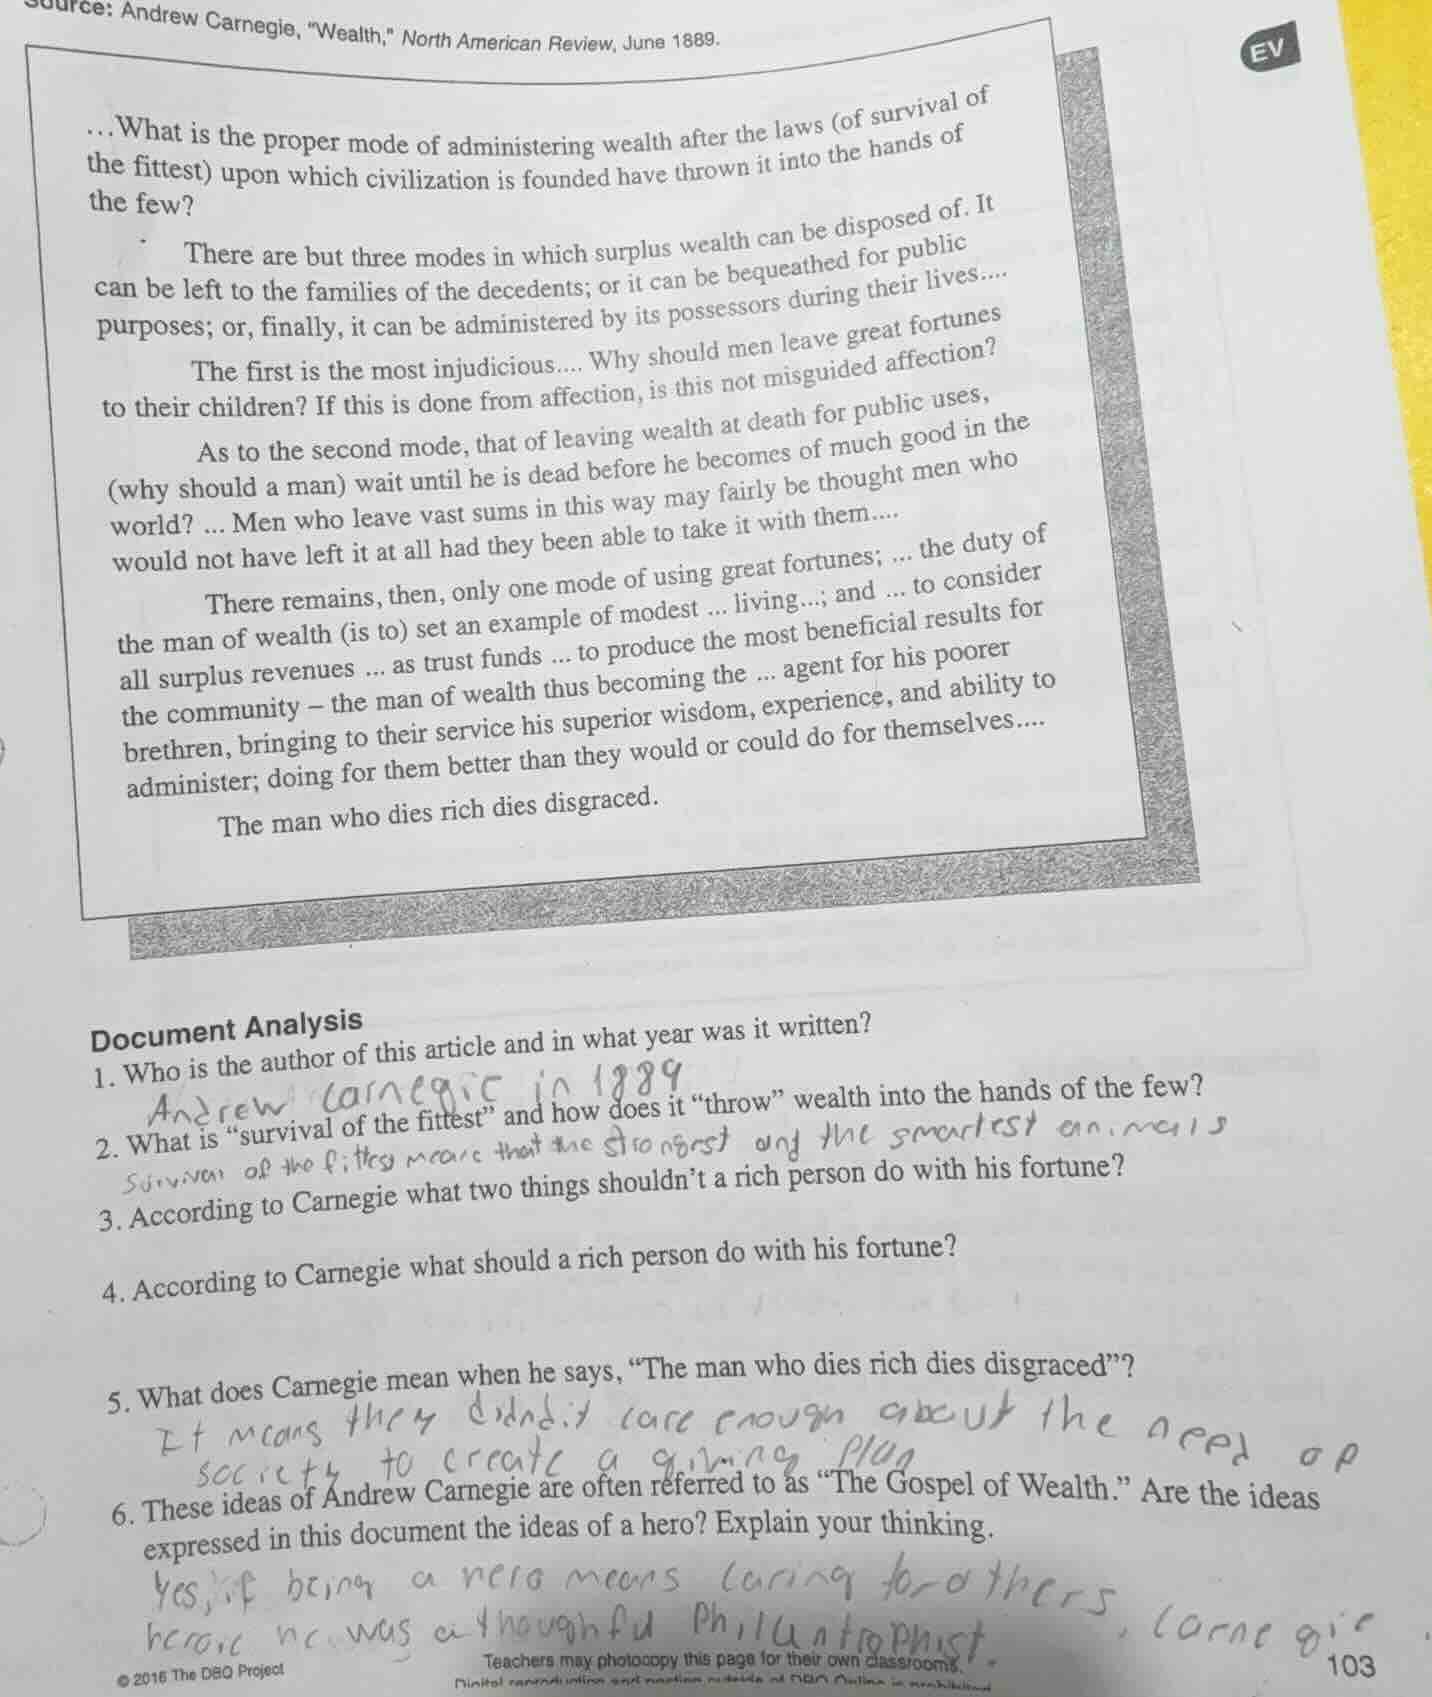 Source: Andrew Carnegie, "Wealth," North American Review, June 1889.
EV
...What is the proper mode of administering wealth after the laws (of survival of
the fittest) upon which civilization is founded have thrown it into the hands of
the few?
There are but three modes in which surplus wealth can be disposed of. It
can be left to the families of the decedents; or it can be bequeathed for public
purposes; or, finally, it can be administered by its possessors during their lives....
The first is the most injudicious.... Why should men leave great fortunes
to their children? If this is done from affection, is this not misguided affection?
As to the second mode, that of leaving wealth at death for public uses,
(why should a man) wait until he is dead before he becomes of much good in the
world? ... Men who leave vast sums in this way may fairly be thought men who
would not have left it at all had they been able to take it with them....
There remains, then, only one mode of using great fortunes; ... the duty of
the man of wealth (is to) set an example of modest ... living...; and ... to consider
all surplus revenues ... as trust funds ... to produce the most beneficial results for
the community – the man of wealth thus becoming the ... agent for his poorer
brethren, bringing to their service his superior wisdom, experience, and ability to
administer; doing for them better than they would or could do for themselves....
The man who dies rich dies disgraced.
Document Analysis
1. Who is the author of this article and in what year was it written?
Andrew Carnegie in 1889
2. What is "survival of the fittest" and how does it "throw" wealth into the hands of the few?
Survival of the fittest means that the strongest and the smartest animals
3. According to Carnegie what two things shouldn't a rich person do with his fortune?
4. According to Carnegie what should a rich person do with his fortune?
5. What does Carnegie mean when he says, "The man who dies rich dies disgraced"?
It means they didndit care enough about the need of
society to create a giving plan
6. These ideas of Andrew Carnegie are often referred to as "The Gospel of Wealth." Are the ideas
expressed in this document the ideas of a hero? Explain your thinking.
Yes, if being a hero means caring for others, Carnegie
heroic he was a thoughful Philantrophist.
© 2016 The DBQ Project
Teachers may photocopy this page for their own classrooms.
Digital reproduction and posting outside of DBQ Online is prohibited
103